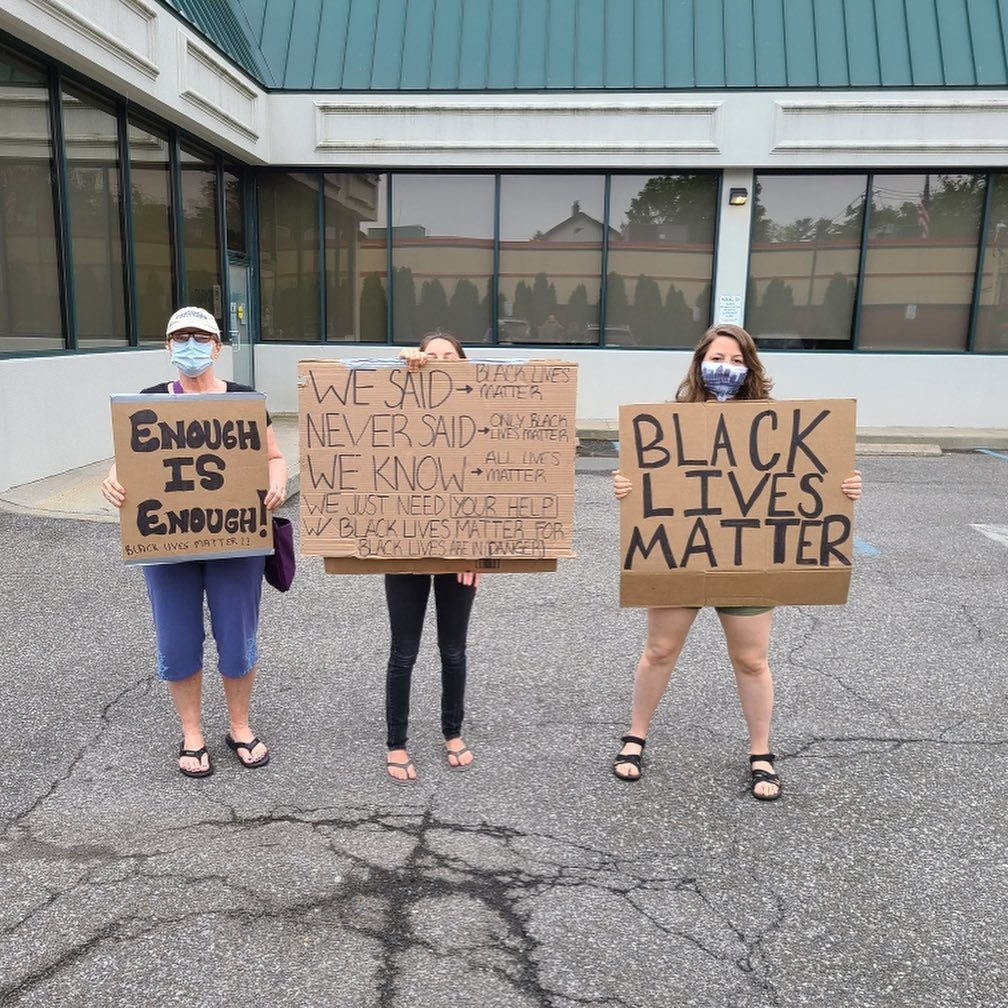 ENOUGH
IS
ENOUGH!
BLACK LIVES MATTER!!
WE SAID → BLACK LIVES
MATTER
NEVER SAID → ONLY BLACK
LIVES MATTER
WE KNOW → ALL LIVES
MATTER
WE JUST NEED [YOUR HELP]
W/ BLACK LIVES MATTER FOR
BLACK LIVES ARE IN [DANGER]
BLACK
LIVES
MATTER